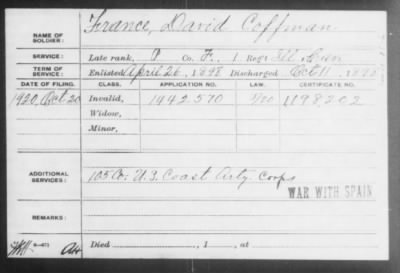 NAME OF SOLDIER: France, David Coffman
SERVICE: Late rank, P Co. F, 1 Reg't Ill
TERM OF SERVICE: Enlisted April 26, 1898 Discharged Oct 11, 1898
DATE OF FILING. CLASS. APPLICATION NO. LAW. CERTIFICATE NO.
1920, Oct 20 Invalid, 1442570 1198202
Widow,
Minor,
ADDITIONAL SERVICES: 105 Co. U.S. Coast Arty. Corps
WAR WITH SPAIN
REMARKS:
Died , 1 , at